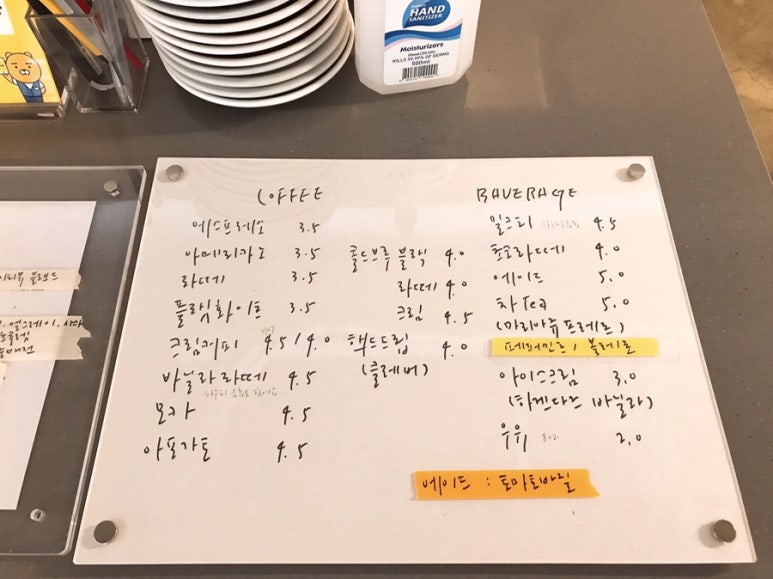 HAND
SANITIZER
Moisturizers
KILLS 99.99% OF GERMS
500ml
COFFEE
에스프레소 3.5
아메리카노 3.5
라떼 3.5
플랫화이트 3.5
크림커피 4.5/4.0
바닐라라떼 4.5
모카 4.5
아포가토 4.5
콜드브루 블랙 4.0
라떼 4.0
크림 4.5
핸드드립 4.0
(클레버)
BAVERAGE
밀크티 4.5
초코라떼 4.0
에이드 5.0
차Tea 5.0
(마리아쥬프레르)
페퍼민트/볼레로
아이스크림 3.0
(하겐다즈 바닐라)
우유 8oz 2.0
에이드 : 토마토바질